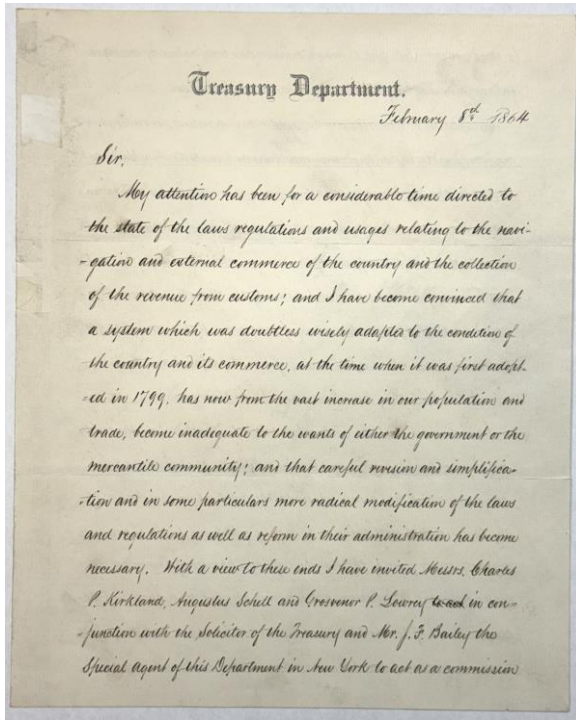 Treasury Department.
February 8th 1864
Sir.
My attention has been for a considerable time directed to
the state of the laws regulations and usages relating to the navi-
-gation and external commerce of the country and the collection
of the revenue from customs; and I have become convinced that
a system which was doubtless wisely adapted to the condition of
the country and its commerce, at the time when it was first adopt-
-ed in 1799, has now from the vast increase in our population and
trade, become inadequate to the wants of either the government or the
mercantile community; and that careful revision and simplifica-
-tion and in some particulars more radical modification of the laws
and regulations as well as reform in their administration has become
necessary. With a view to these ends I have invited Messrs. Charles
P. Kirkland, Augustus Schell and Grosvenor P. Lowrey to act in con-
-junction with the Solicitor of the Treasury and Mr. J. F. Bailey the
Special agent of this Department in New York to act as a commission